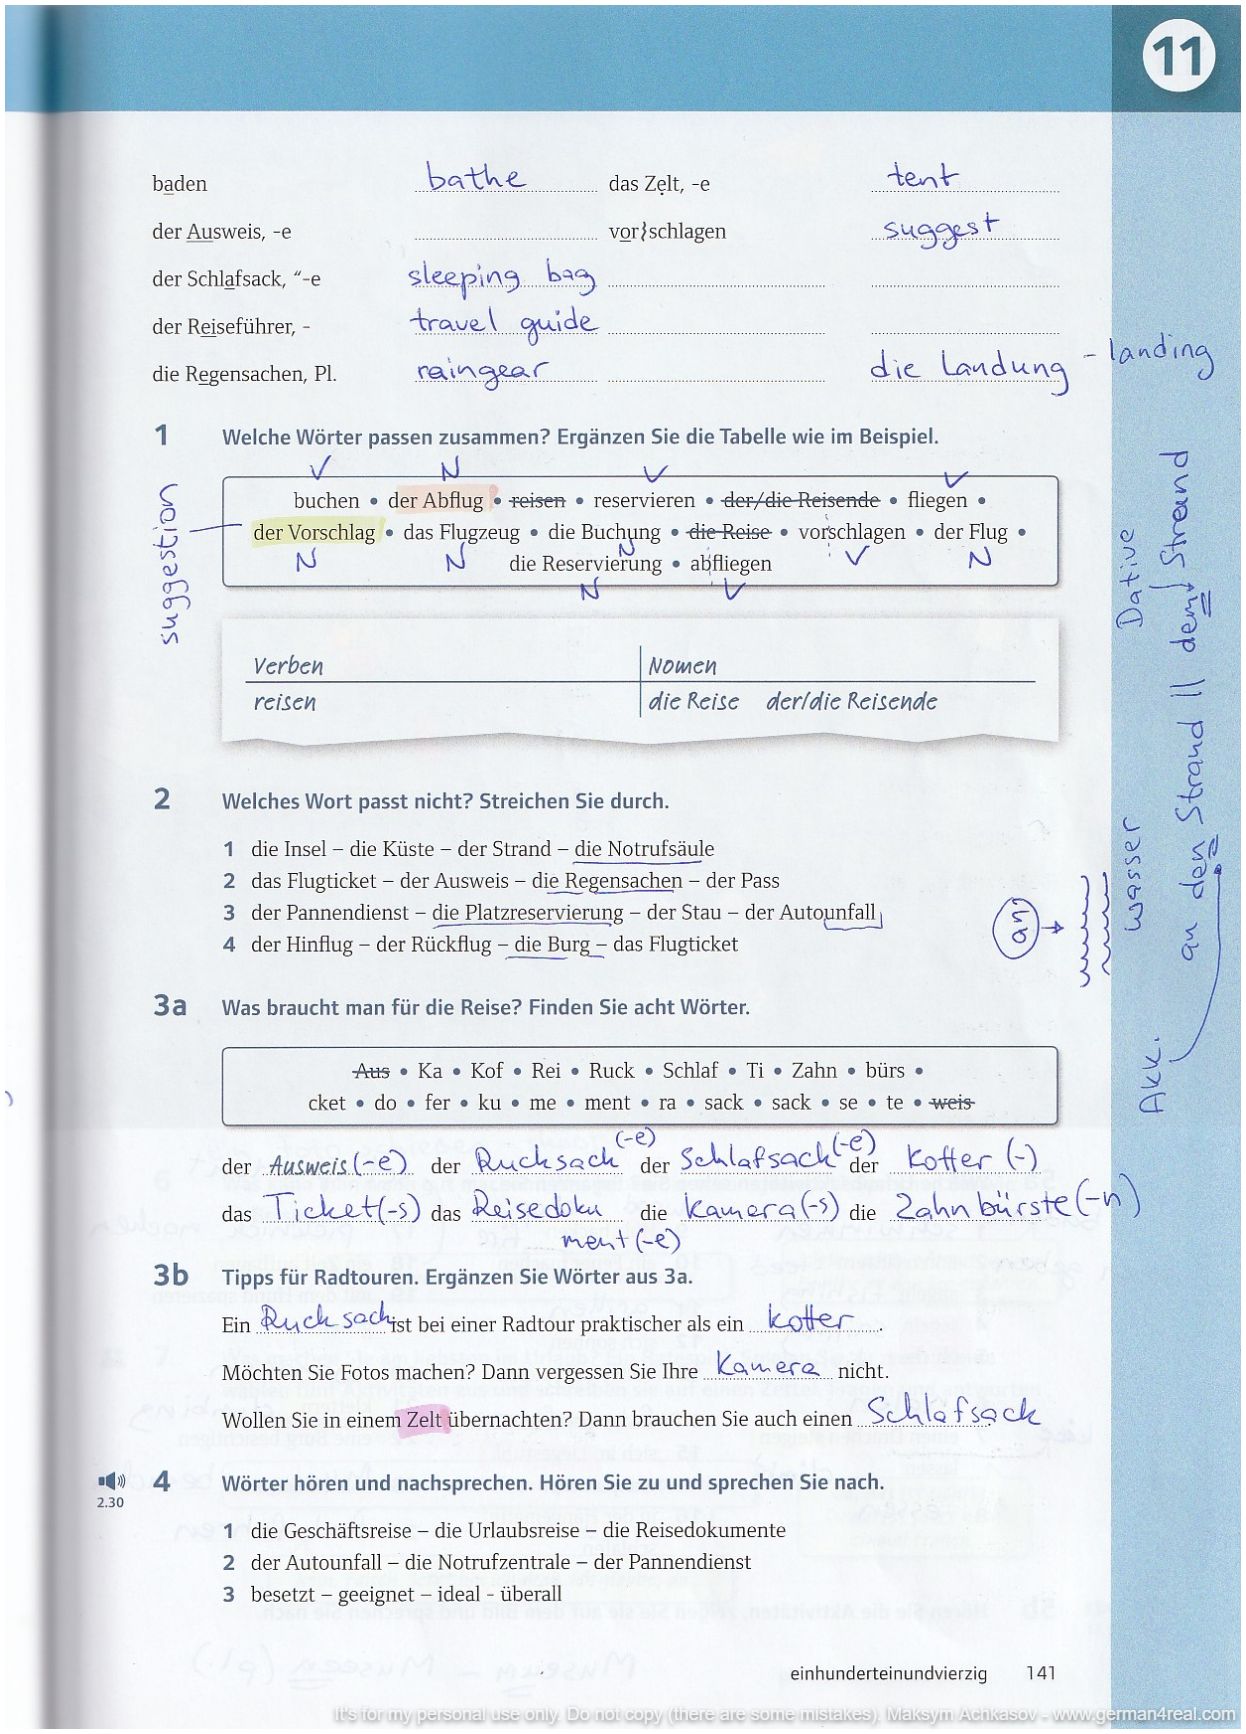 11
baden bathe das Zelt, -e tent
der Ausweis, -e vor}schlagen suggest
der Schlafsack, “-e sleeping bag
der Reiseführer, - travel guide
die Regensachen, Pl. raingear die Landung - landing
1 Welche Wörter passen zusammen? Ergänzen Sie die Tabelle wie im Beispiel.
V N V V
buchen • der Abflug • reisen • reservieren • der/die Reisende • fliegen •
suggestion
der Vorschlag • das Flugzeug • die Buchung • die Reise • vorschlagen • der Flug •
N N N V N
die Reservierung • abfliegen
N V
Verben Nomen
reisen die Reise der/die Reisende
2 Welches Wort passt nicht? Streichen Sie durch.
1 die Insel – die Küste – der Strand – die Notrufsäule
2 das Flugticket – der Ausweis – die Regensachen – der Pass
3 der Pannendienst – die Platzreservierung – der Stau – der Autounfall
4 der Hinflug – der Rückflug – die Burg – das Flugticket
an
wasser
Akk. Dative
an den Strand || dem Strand
3a Was braucht man für die Reise? Finden Sie acht Wörter.
Aus • Ka • Kof • Rei • Ruck • Schlaf • Ti • Zahn • bürs •
cket • do • fer • ku • me • ment • ra • sack • sack • se • te • weis
der Ausweis (-e) der Rucksack (-e) der Schlafsack (-e) der Koffer (-)
das Ticket (-s) das Reisedoku die Kamera (-s) die Zahnbürste (-n)
ment (-e)
3b Tipps für Radtouren. Ergänzen Sie Wörter aus 3a.
Ein Rucksack ist bei einer Radtour praktischer als ein Koffer.
Möchten Sie Fotos machen? Dann vergessen Sie Ihre Kamera nicht.
Wollen Sie in einem Zelt übernachten? Dann brauchen Sie auch einen Schlafsack
4 Wörter hören und nachsprechen. Hören Sie zu und sprechen Sie nach.
2.30
1 die Geschäftsreise – die Urlaubsreise – die Reisedokumente
2 der Autounfall – die Notrufzentrale – der Pannendienst
3 besetzt – geeignet – ideal - überall
einhunderteinundvierzig 141
It's for my personal use only. Do not copy (there are some mistakes). Maksym Achkasov - www.german4real.com